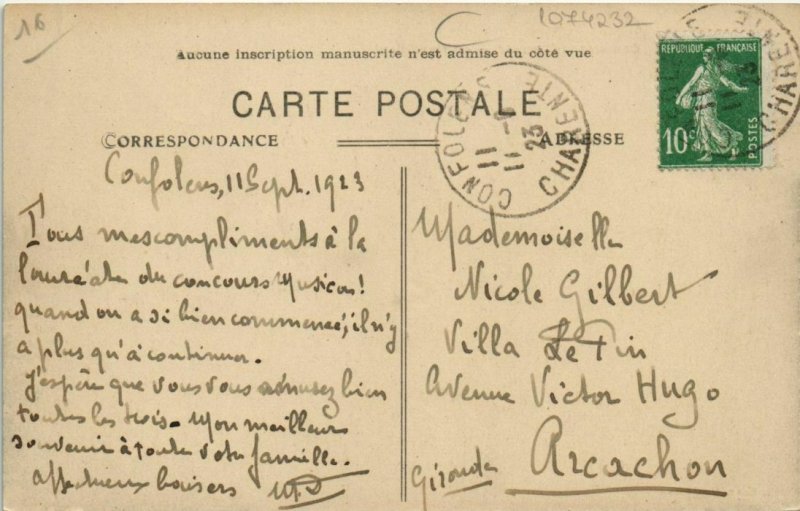 16
1074232
Aucune inscription manuscrite n'est admise du côté vue
CARTE POSTALE
CORRESPONDANCE
ADRESSE
CONFOLENS
11
11-9
23
CHARENTE
REPUBLIQUE FRANÇAISE
10c
POSTES
CHARENTE
Confolens, 11 Sept. 1923
Tous mes compliments à la
lauréate du concours Musical!
quand on a si bien commencé, il n'y
a plus qu'à continuer.
J'espère que vous vous amusez bien
toutes les trois. Mon meilleur
souvenir à toute votre famille.
affectueux baisers MD
Mademoiselle
Nicole Gilbert
Villa Le Pin
Avenue Victor Hugo
Arcachon
Gironde